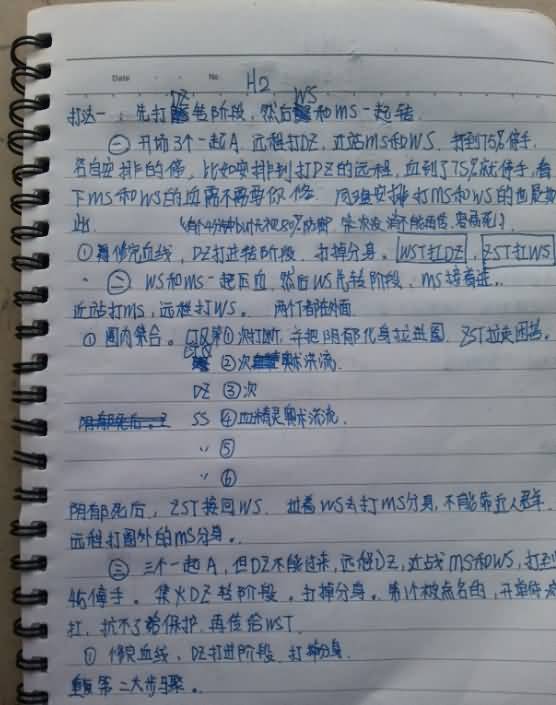 Date No. H2
DZ WS
打法一：先打转阶段，然后和MS一起转
㊀ 开场3个一起A，远程打DZ，近站MS和WS，打到75%停手，
各自安排的停，比如安排到打DZ的远程，血到了75%就停手，看
下MS和WS的血需不需要你修，同理安排打MS和WS的也是如
此。
① 修完血线，DZ打进转阶段，打掉分身。WST扛DZ，ZST扛WS
㊁ WS和MS一起压血，然后WS先转阶段，MS接着进。
近站打MS，远程打WS。两个T都在外面
① 圈内集合。第①次打断，并把阴郁化身拉进圈，ZST拉
②次奥术洪流
DZ ③次
SS ④血精灵奥术洪流
〃 ⑤
〃 ⑥
阴郁死后，ZST换回WS，拉着WS去打MS分身，不能靠近人群，
远程打圈外的MS分身。
㊂ 三个一起A，但DZ不能过来，远程DZ，近战MS和WS，打到
45停手。集火DZ转阶段，打掉分身。第1个被点名的，开单体
扛，抗不了给保护，再传给WST
① 修完血线，DZ打进阶段，打掉分身
重复第二大步骤。